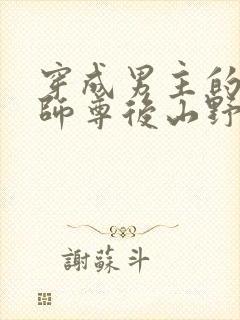 穿成男主的
師尊後山野
謝蘇斗